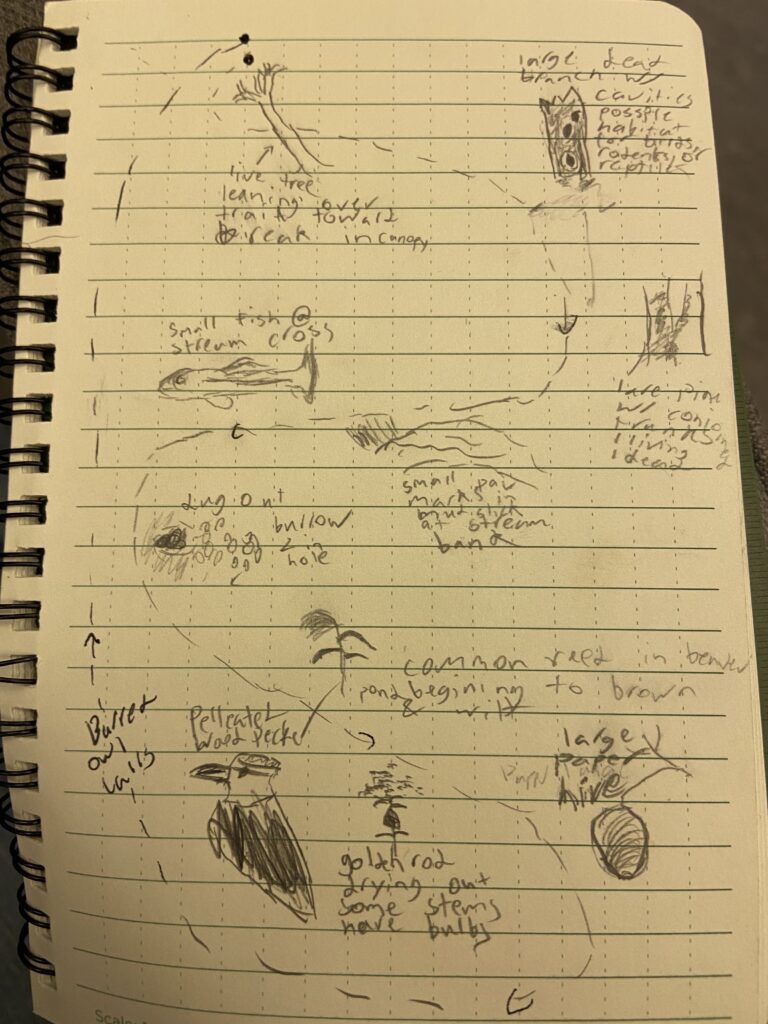 large dead
branch w/
cavities
possple
habitat
for birds,
rodents, or
reptiles
live tree
leaning over
trail toward
break in canopy
small fish @
stream cross
large pine
w/
trunks
1 living
1 dead
small paw
marks in
at stream
bank
dug out
bullow
in
hole
common reed in beaver
pond begining to brown
& wilt
owl
calls
Pelleated
wood pecker
large
paper
hive
goldenrod
drying out
some stems
have bulbs
Scale: